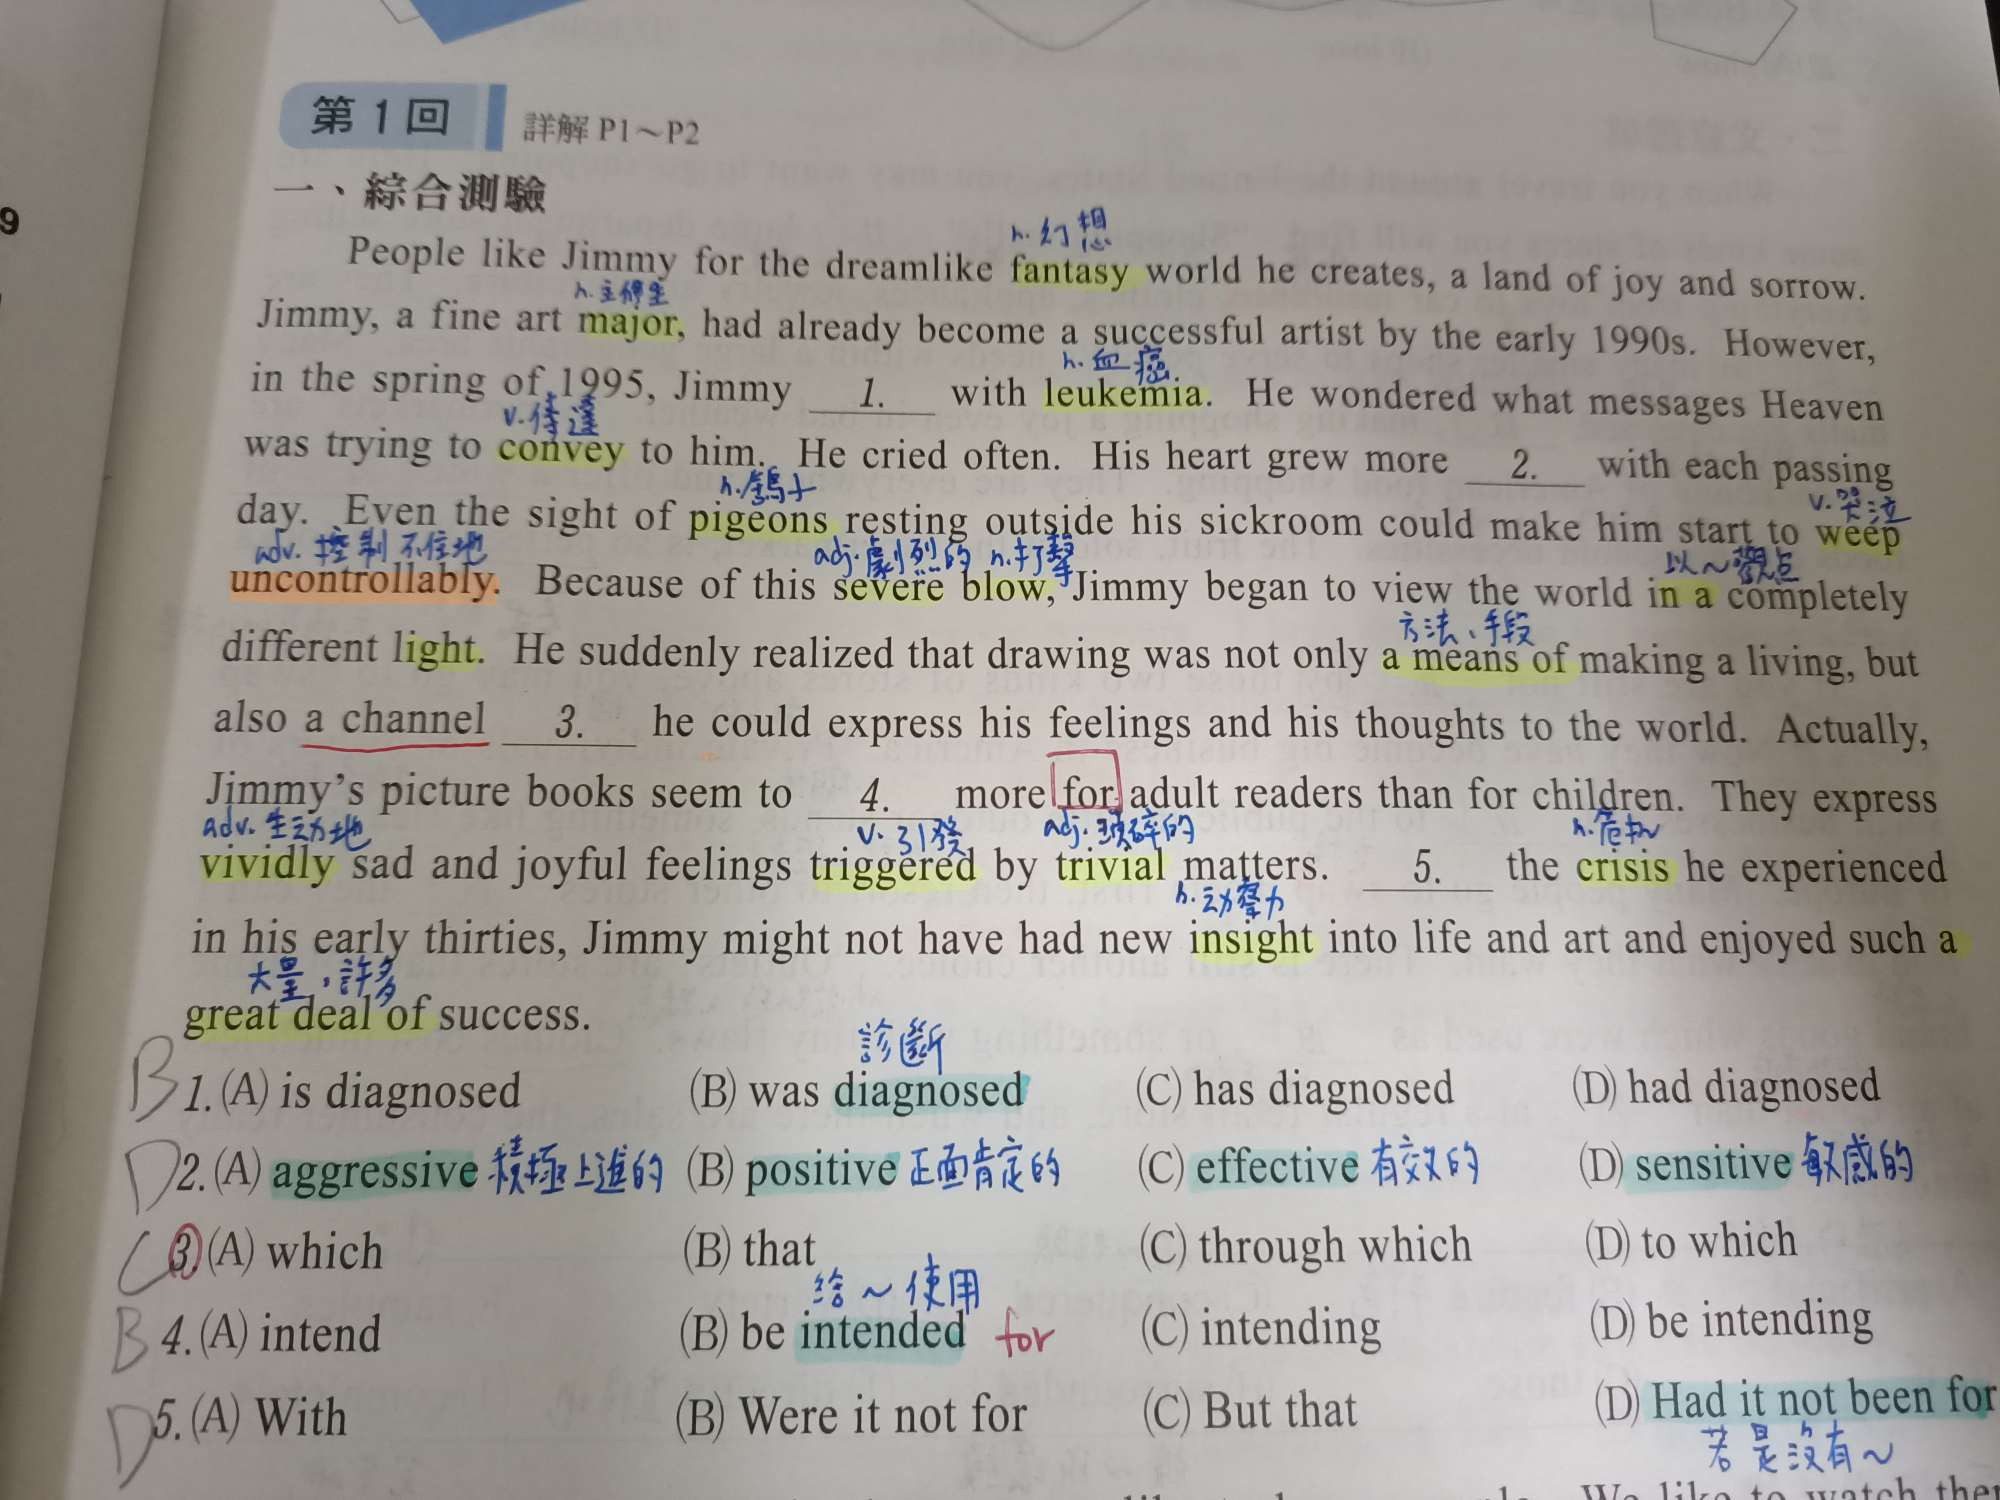 第 1 回 詳解 P1～P2
9
一、綜合測驗
n. 幻想
People like Jimmy for the dreamlike fantasy world he creates, a land of joy and sorrow.
n. 主修生
Jimmy, a fine art major, had already become a successful artist by the early 1990s. However,
n. 血癌
in the spring of 1995, Jimmy 1. with leukemia. He wondered what messages Heaven
v. 傳達
was trying to convey to him. He cried often. His heart grew more 2. with each passing
n. 鴿子 v. 哭泣
day. Even the sight of pigeons resting outside his sickroom could make him start to weep
adv. 控制不住地 adj. 劇烈的 n. 打擊 以～觀点
uncontrollably. Because of this severe blow, Jimmy began to view the world in a completely
方法、手段
different light. He suddenly realized that drawing was not only a means of making a living, but
also a channel 3. he could express his feelings and his thoughts to the world. Actually,
Jimmy's picture books seem to 4. more for adult readers than for children. They express
adv. 生动地 v. 引發 adj. 瑣碎的 n. 危机
vividly sad and joyful feelings triggered by trivial matters. 5. the crisis he experienced
n.
in his early thirties, Jimmy might not have had new insight into life and art and enjoyed such a
大量，許多
great deal of success.
診斷
B 1. (A) is diagnosed (B) was diagnosed (C) has diagnosed (D) had diagnosed
D 2. (A) aggressive 積極上進的 (B) positive 正面肯定的 (C) effective 有效的 (D) sensitive 敏感的
C 3. (A) which (B) that (C) through which (D) to which
給～使用
B 4. (A) intend (B) be intended for (C) intending (D) be intending
D 5. (A) With (B) Were it not for (C) But that (D) Had it not been for
若是沒有～
We like to watch